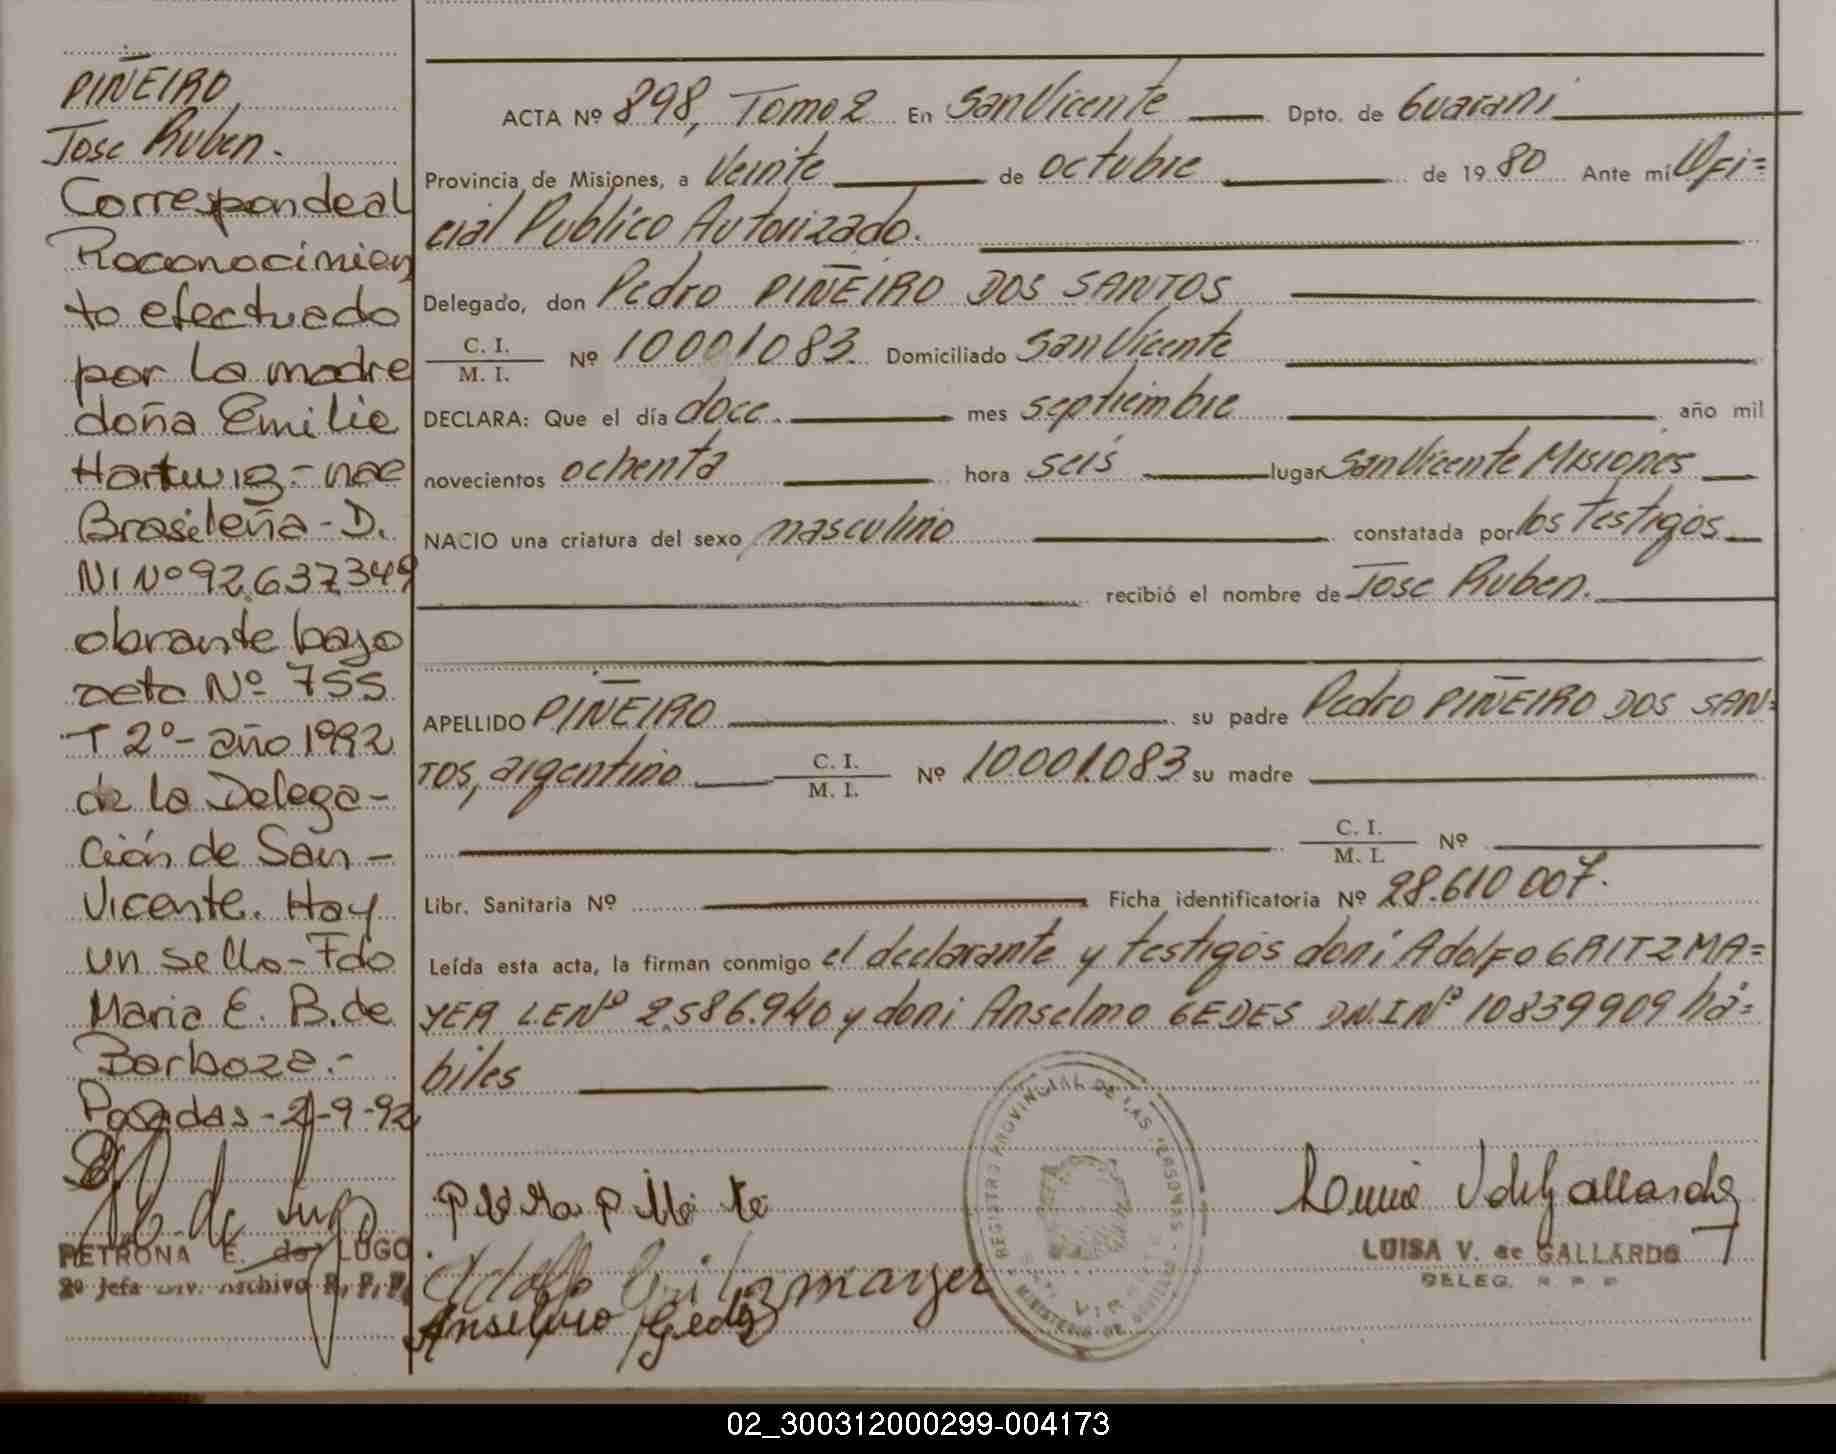 PIÑEIRO,
Jose Ruben.
Corresponde al
Roconocimien
to efectuado
por la madre
doña Emilie
Hartwig - nac
Brasileña - D.
NI Nº 92.637349
obrante bajo
acta Nº 755
T 2º - año 1992
de la Delega-
ción de San-
Vicente. Hay
un sello - Fdo
Maria E. B. de
Barboza.-
Posadas - 21-9-92
PETRONA E. de LUGO
2º Jefa Div. Archivo R. P. P.
ACTA Nº 898, Tomo 2 En San Vicente Dpto. de Guarani
Provincia de Misiones, a Veinte de octubre de 19 80 Ante mi Ofi=
cial Publico Autorizado.
Delegado, don Pedro PIÑEIRO DOS SANTOS
C. I. / M. I. Nº 10001083. Domiciliado San Vicente
DECLARA: Que el día doce. mes septiembre año mil
novecientos ochenta hora seis lugar San Vicente Misiones
NACIO una criatura del sexo masculino constatada por los testigos
recibió el nombre de Jose Ruben.
APELLIDO PIÑEIRO su padre Pedro PIÑEIRO DOS SAN=
TOS, argentino C. I. / M. I. Nº 10.001.083 su madre
C. I. / M. I. Nº
Libr. Sanitaria Nº Ficha identificatoria Nº 28.610 007.
Leída esta acta, la firman conmigo el declarante y testigos doni Adolfo GRITZMA=
YER LE Nº 2.586.940 y doni Anselmo GEDES DN.I Nº 10839909 há=
biles
REGISTRO PROVINCIAL DE LAS PERSONAS
MINISTERIO DE GOBIERNO
Adolfo Gritzmayer
Anselmo Gedez
Luisa V de Gallardo
LUISA V. de GALLARDO
DELEG. R P P
02_300312000299-004173